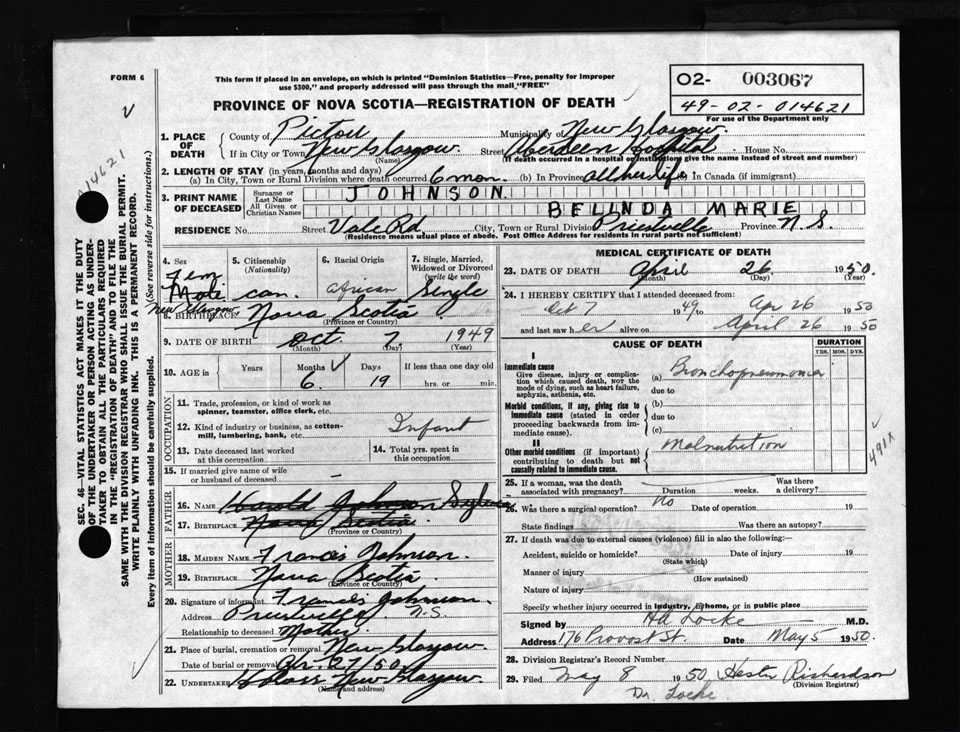 FORM 6
This form if placed in an envelope, on which is printed "Dominion Statistics—Free, penalty for improper
use $300," and properly addressed will pass through the mail "FREE"
O2- 003067
49-02-014621
For use of the Department only
PROVINCE OF NOVA SCOTIA—REGISTRATION OF DEATH
014621
1. PLACE OF DEATH County of Pictou Municipality of New Glasgow.
If in City or Town New Glasgow. Street Aberdeen Hospital House No.
(Name) (If death occurred in a hospital or institution, give the name instead of street and number)
2. LENGTH OF STAY (in years, months and days)
(a) In City, Town or Rural Division where death occurred 6 mon. (b) In Province all her life In Canada (if immigrant)
3. PRINT NAME OF DECEASED Surname or Last Name JOHNSON
All Given or Christian Names BELINDA MARIE
RESIDENCE No. Street Vale Rd. City, Town or Rural Division Priestville Province N.S.
(Residence means usual place of abode. Post Office Address for residents in rural parts not sufficient)
4. Sex Fem
5. Citizenship (Nationality) Can.
6. Racial Origin African
7. Single, Married, Widowed or Divorced (write the word) Single
8. BIRTHPLACE New Glasgow Nova Scotia
(Province or Country)
9. DATE OF BIRTH Oct. 7. 1949
(Month) (Day) (Year)
10. AGE in Years Months 6. Days 19 If less than one day old hrs. or min.
OCCUPATION
11. Trade, profession, or kind of work as spinner, teamster, office clerk, etc.
12. Kind of industry or business, as cotton-mill, lumbering, bank, etc. Infant
13. Date deceased last worked at this occupation
14. Total yrs. spent in this occupation
15. If married give name of wife or husband of deceased —
FATHER
16. Name Harold Johnson
17. Birthplace Nova Scotia
(Province or Country)
MOTHER
18. Maiden Name Francis Johnson.
19. Birthplace Nova Scotia
(Province or Country)
20. Signature of informant Francis Johnson.
Address Priestville N.S.
Relationship to deceased Mother.
21. Place of burial, cremation or removal New Glasgow.
Date of burial or removal Apr. 27/50
22. Undertaker New Glasgow.
(Name and address)
MEDICAL CERTIFICATE OF DEATH
23. DATE OF DEATH April 26 1950.
(Month) (Day) (Year)
24. I HEREBY CERTIFY that I attended deceased from:
Oct 7 1949 to Apr 26 1950
and last saw her alive on April 26 1950
CAUSE OF DEATH
DURATION
YRS. MOS. DYS.
I
Immediate cause
Give disease, injury or complication which caused death, NOT the mode of dying, such as heart failure, asphyxia, asthenia, etc.
(a) Bronchopneumonia
due to
Morbid conditions, if any, giving rise to immediate cause (stated in order proceeding backwards from immediate cause).
(b)
due to
(c)
II
Other morbid conditions (if important) contributing to death but not causally related to immediate cause.
Malnutrition
491X
25. If a woman, was the death associated with pregnancy? Duration weeks. Was there a delivery?
26. Was there a surgical operation? no Date of operation 19
State findings Was there an autopsy?
27. If death was due to external causes (violence) fill in also the following:—
Accident, suicide or homicide? Date of injury 19
(State which)
Manner of injury
(How sustained)
Nature of injury
Specify whether injury occurred in industry, in home, or in public place
Signed by HA Locke M.D.
Address 176 Provost St. Date May 5 1950.
28. Division Registrar's Record Number
29. Filed May 8 1950 Hester Richardson
(Division Registrar)
Dr. Locke
SEC. 46—VITAL STATISTICS ACT MAKES IT THE DUTY
OF THE UNDERTAKER OR PERSON ACTING AS UNDER-
TAKER TO OBTAIN ALL THE PARTICULARS REQUIRED
IN THE "REGISTRATION OF DEATH" AND TO FILE THE
SAME WITH THE DIVISION REGISTRAR WHO SHALL ISSUE THE BURIAL PERMIT.
WRITE PLAINLY WITH UNFADING INK. THIS IS A PERMANENT RECORD.
Every item of information should be carefully supplied. (See reverse side for instructions.)